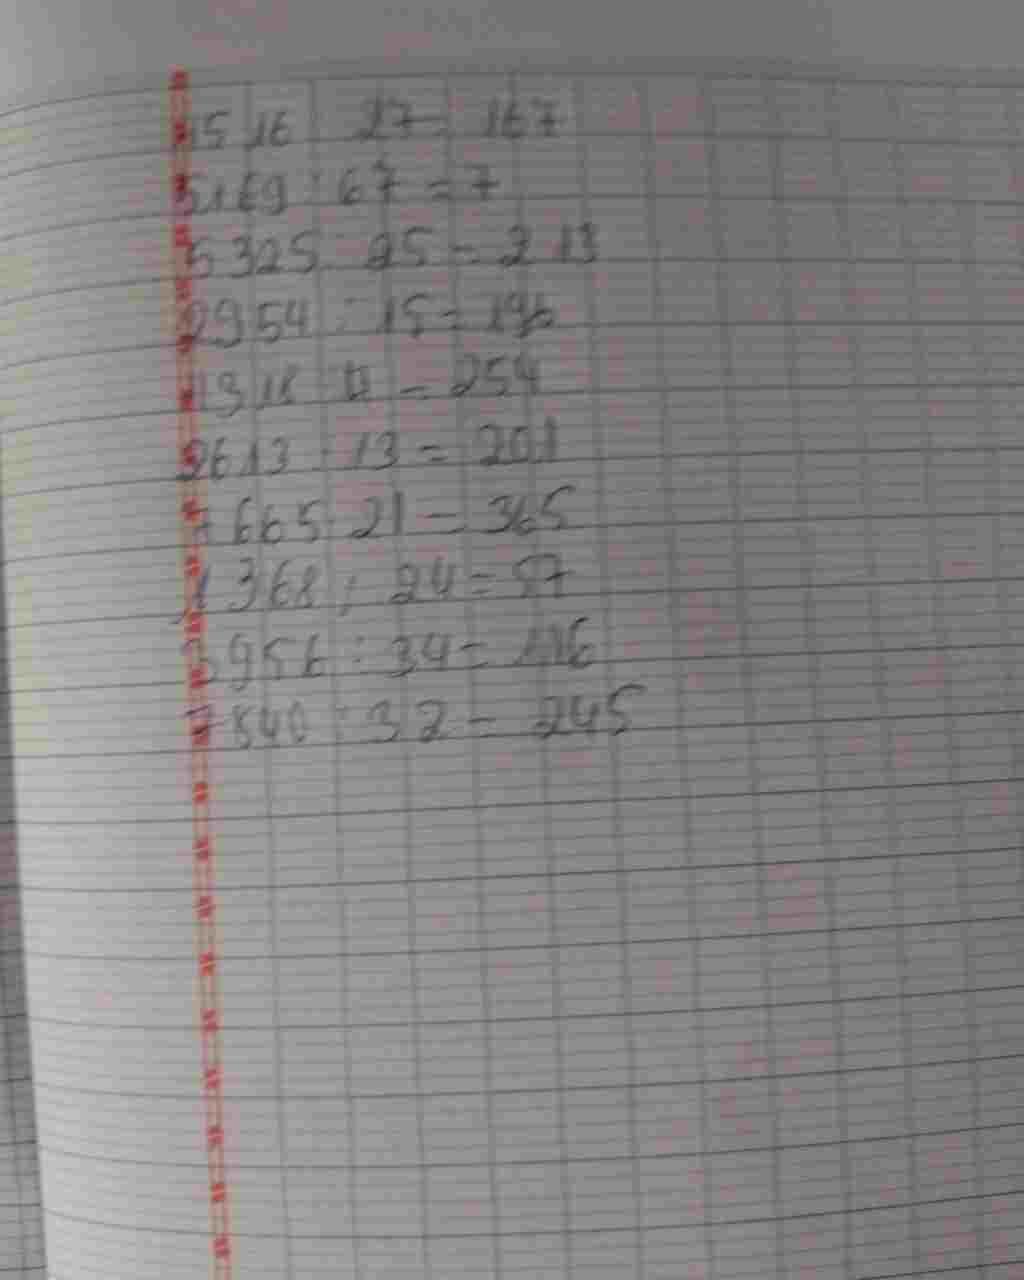 4516 : 27 = 167
5169 : 67 = 7
5325 : 25 = 213
2954 : 15 = 196
1318 = 254
2613 : 13 = 201
7665 : 21 = 365
1368 : 24 = 57
3956 : 34 = 116
7840 : 32 = 245